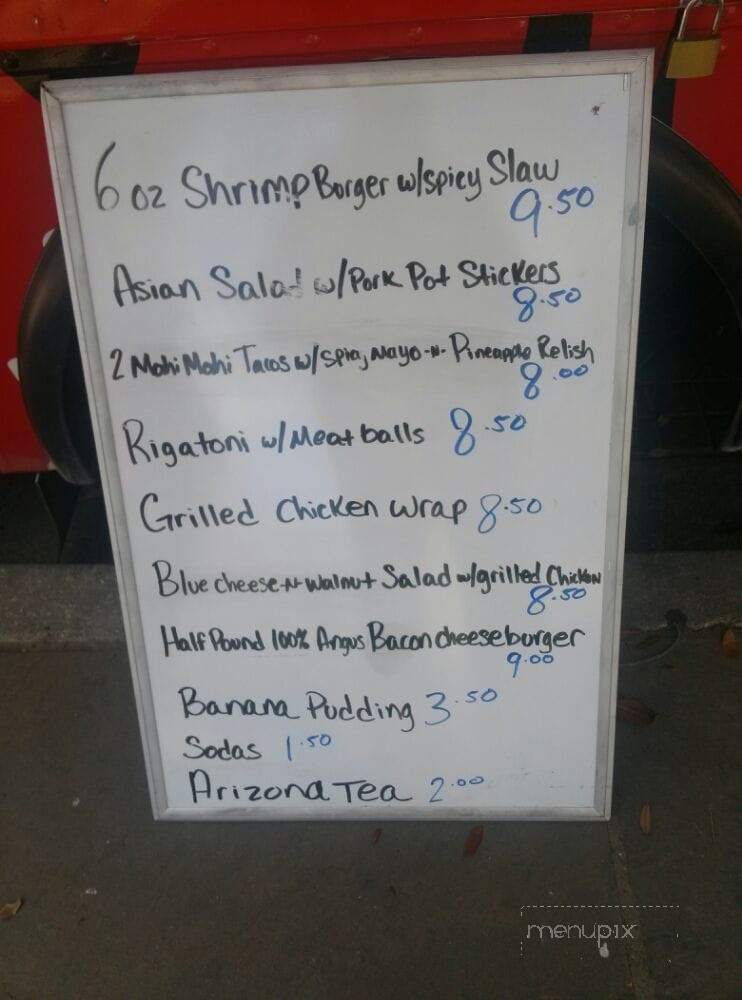 6 oz Shrimp Borger w/spicy Slaw
9.50
Asian Salad w/Pork Pot Stickers
8.50
2 Mahi Mahi Tacos w/Spicy Mayo-n-Pineapple Relish
8.00
Rigatoni w/Meatballs 8.50
Grilled Chicken Wrap 8.50
Blue cheese-n-walnut Salad w/grilled Chicken
8.50
Half Pound 100% Angus Bacon cheeseburger
9.00
Banana Pudding 3.50
Sodas 1.50
Arizona Tea 2.00
menupix